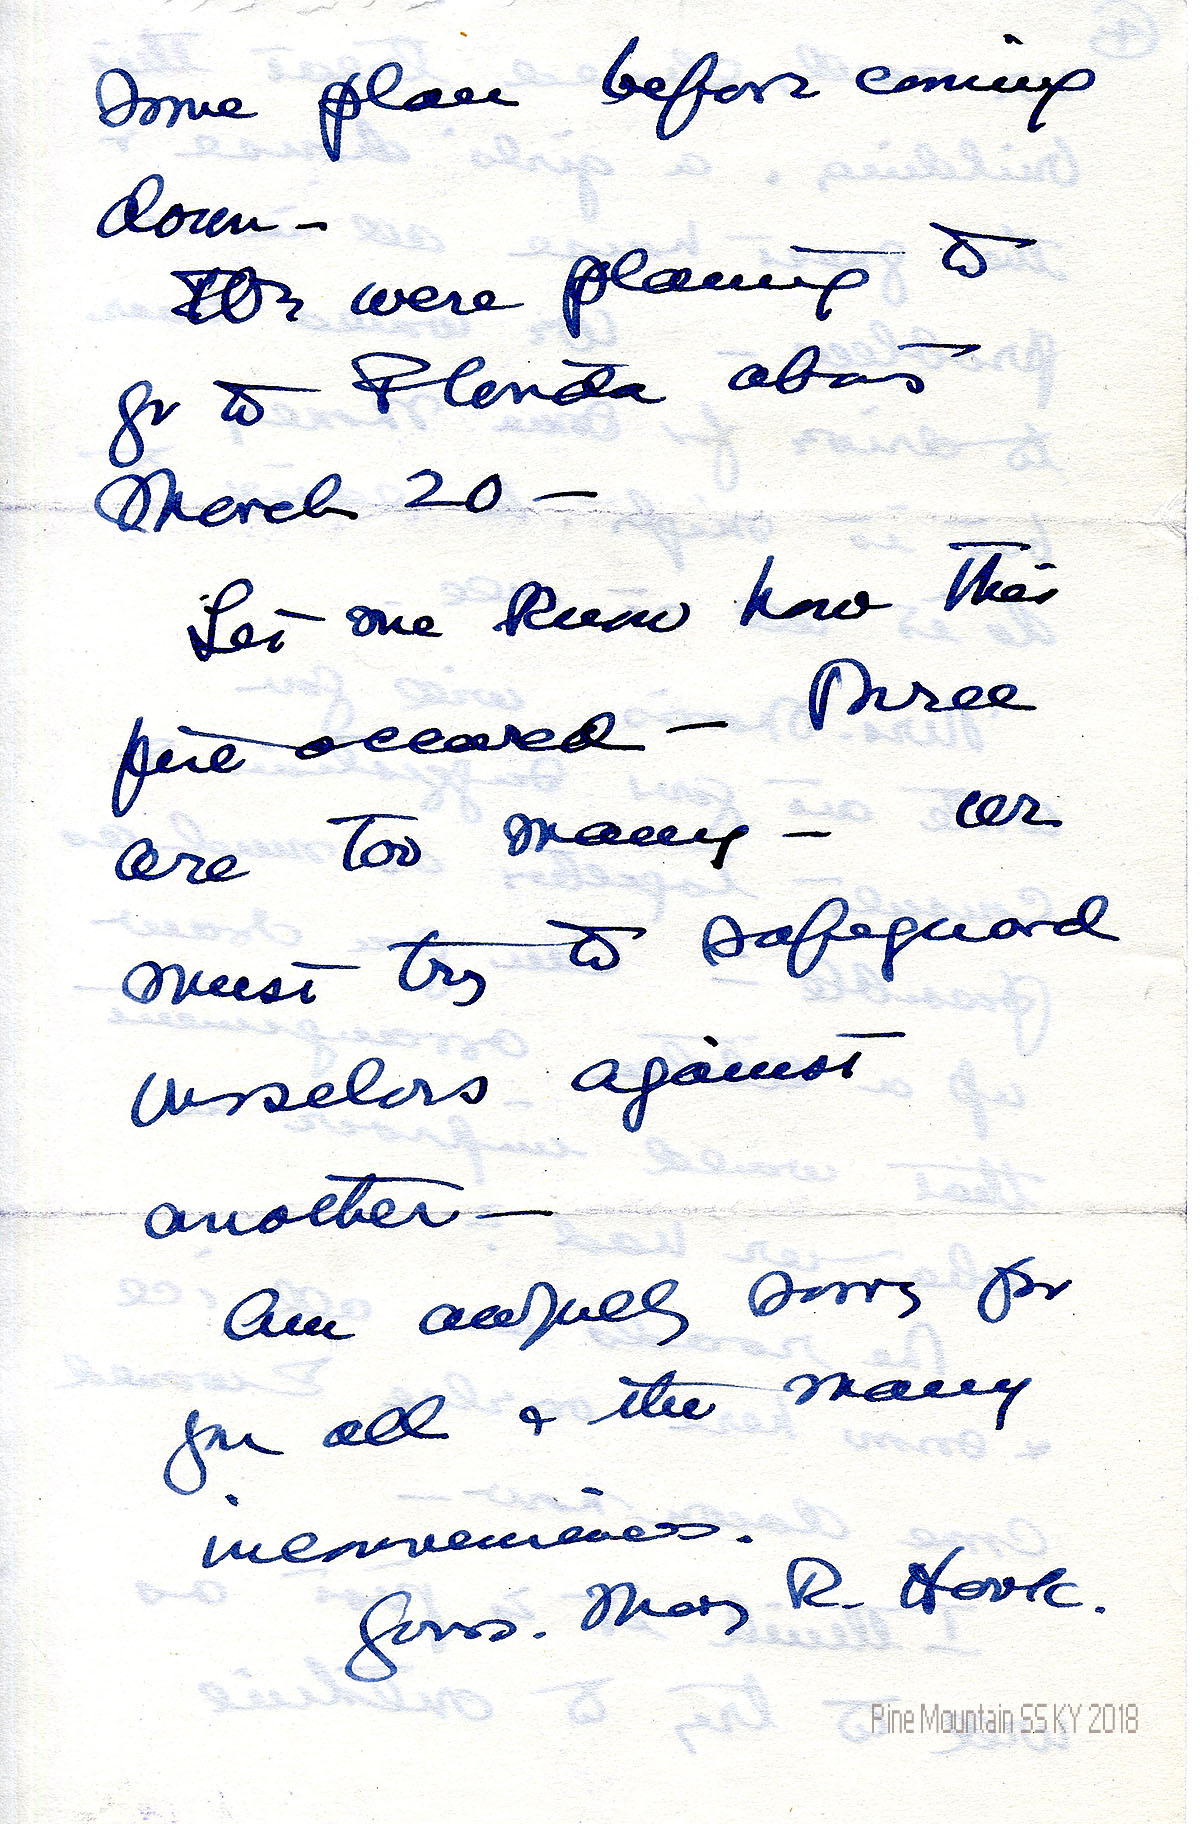 some plan before coming
down -
We were planing to
go to Florida about
March 20 -
Let me know how this
fire occured - Three
are too many - we
must try to safeguard
ourselves against
another -
Am awfully sorry for
you all & the many
inconveniences.
Yours. Mary R. Hook.
Pine Mountain SS KY 2018